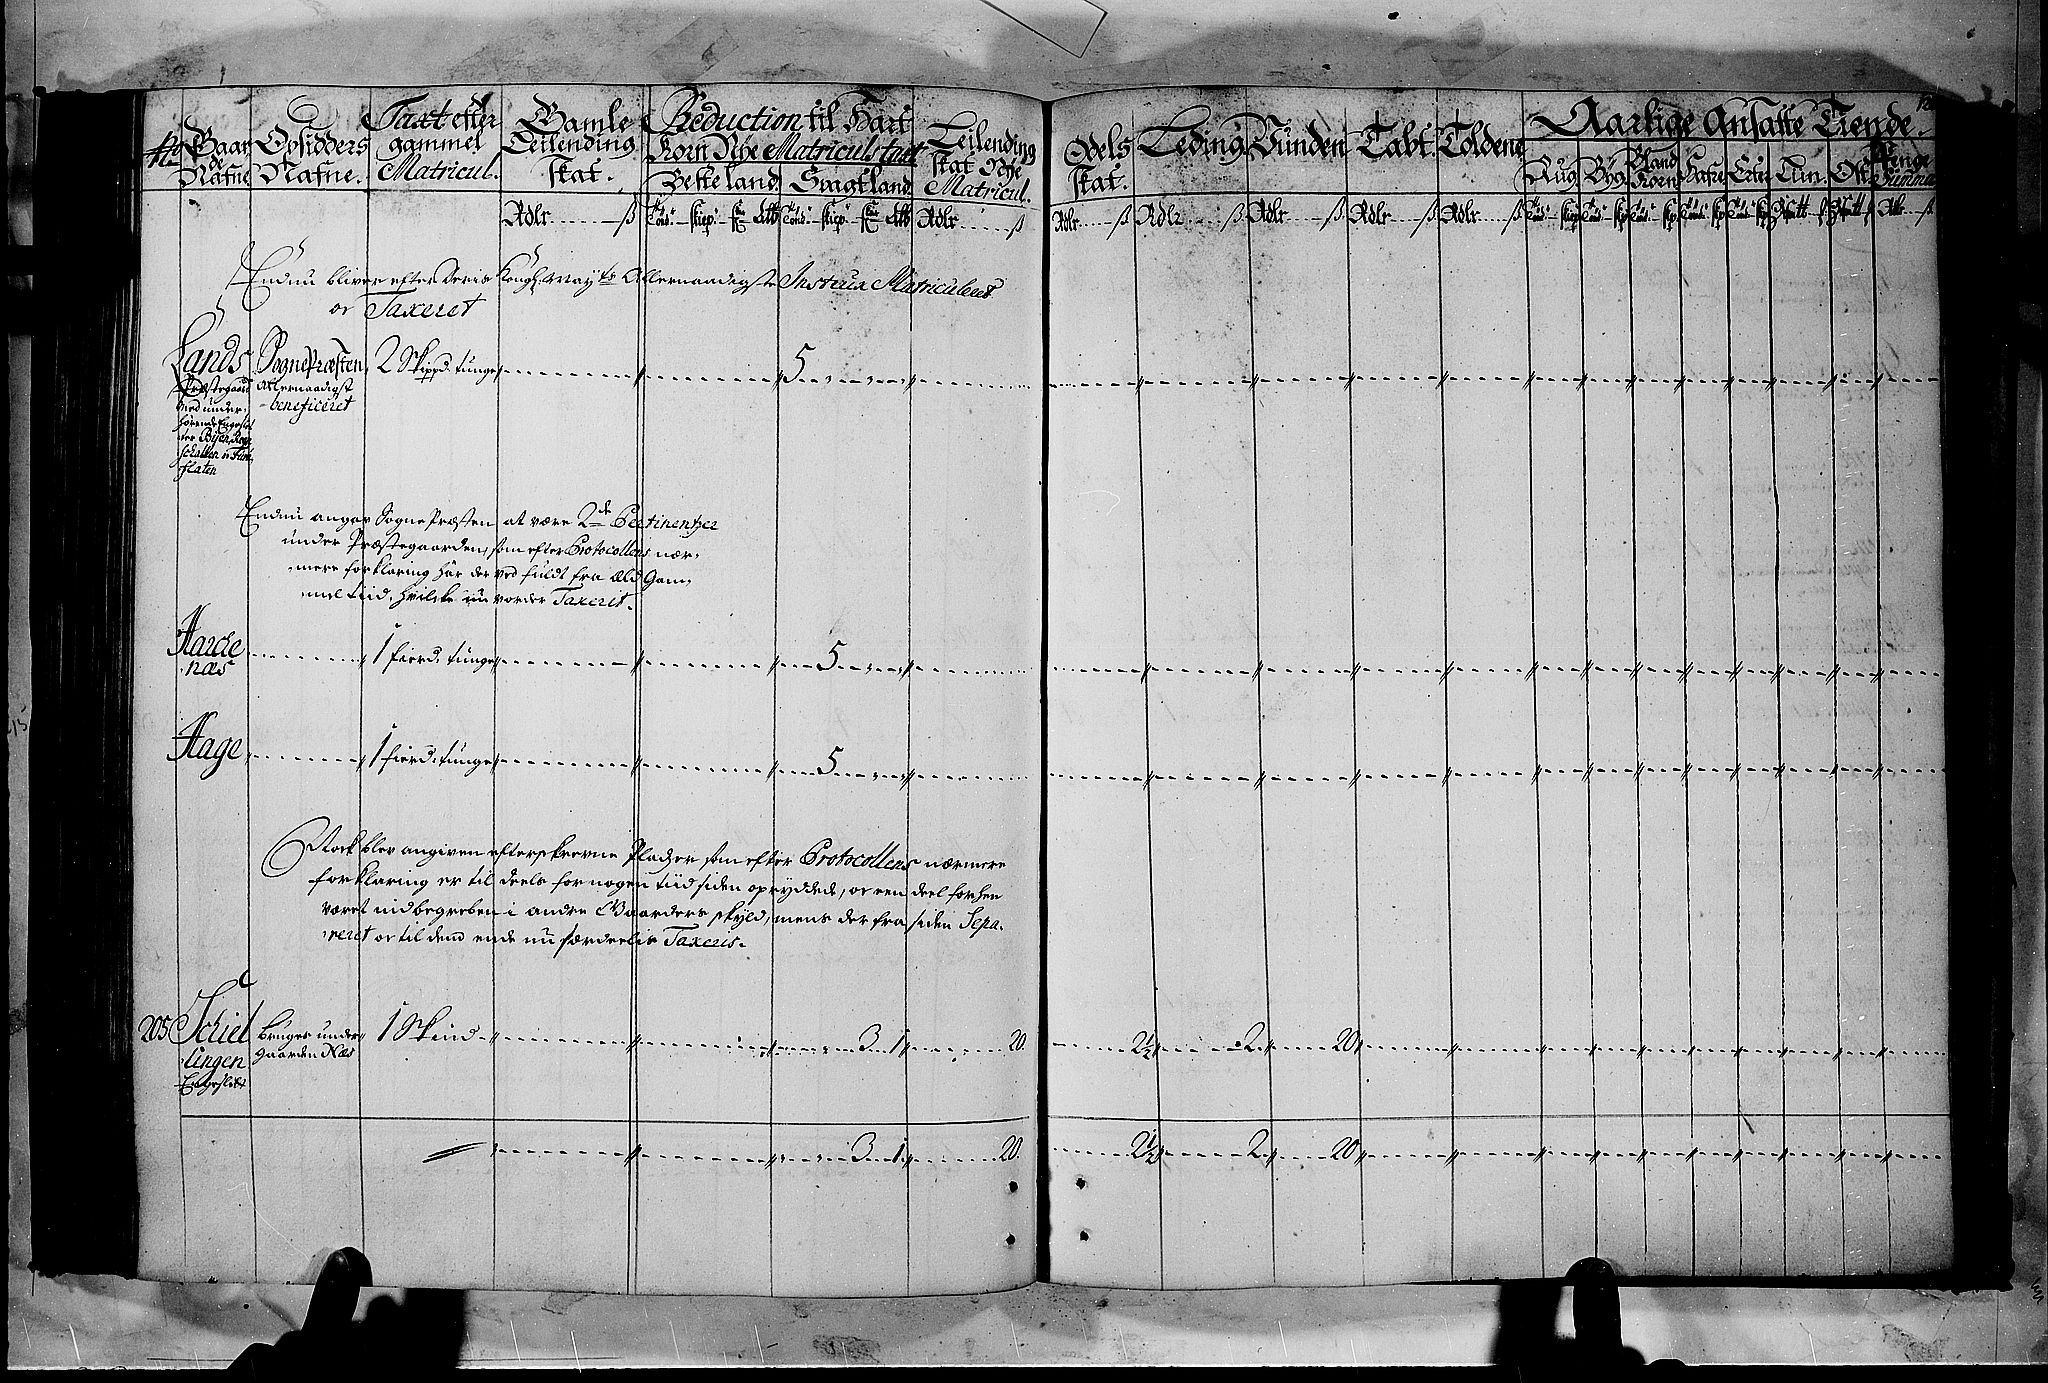 No
Gaar
de
Nafne
Opsidders
Nafne.
Taxt efter
gammel
Matricul.
Gamle
Leilending
skat.
Reduction til Hart
Korn Nye Matricul taxt
Beste land. Svagt land
Leilending
skat Nye
Matricul.
Odels
skat.
Leding
Vunden
Tabt.
Toldene
Aarlige Ansatte Tiende.
Rug. Byg. Bland Korn Hafre Erter Liin. Ost Penge Summa
Rdlr ß
Endnu bliver efter Deris Kongl: Mayts Allernaadigste Instrux Matriculeret
og Taxeret
Lands
Præstegaard
med under-
hørende Engeslet
ter
schallen og
flaten
SognePræsten
allernaadigst
beneficeret
2 Skippd. tunge
5
Endnu angav SognePræsten at være 2de Pertinentzer
under Præstegaarden, som efter Protocollens nær-
mere forklaring har der ved fuldt fra Æld Gam-
mel tiid, hvilcke nu vorder Taxerit.
Harde
næs
1 fierd. tunge
5
Hage
1 fierd. tunge
5
Nock blev angiven efterskrevne Pladzer som efter Protocollens nærmere
forklaring er til deels for nogen tiid siden opryddede, og een deel forhen
været indbegreben i andre Gaarders skyld, mens der fra siden Sepa-
reret og til dend ende nu særdeelis Taxeris.
205 Schiel
lingen
Engeslæt
Bruges under
Gaarden Næs
1 Skind
3 1 20. 2½ 2 20
3 1 20. 2½ 2 20